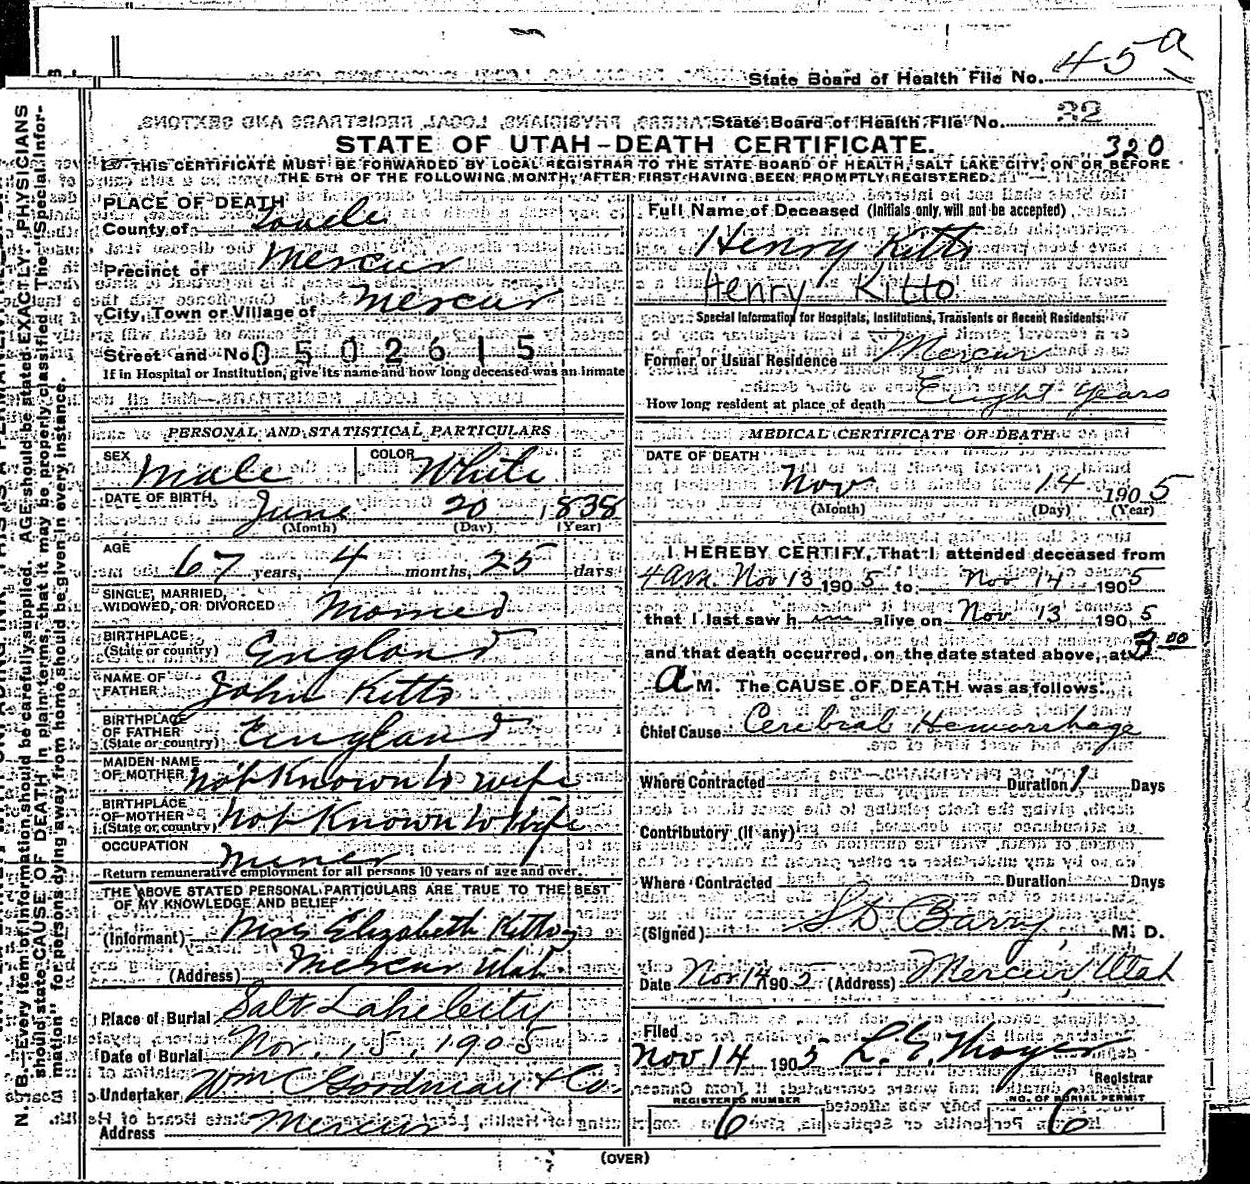 State Board of Health File No. 45a
State Board of Health File No. 32
STATE OF UTAH-DEATH CERTIFICATE. 320
THIS CERTIFICATE MUST BE FORWARDED BY LOCAL REGISTRAR TO THE STATE BOARD OF HEALTH, SALT LAKE CITY, ON OR BEFORE
THE 5TH OF THE FOLLOWING MONTH, AFTER FIRST HAVING BEEN PROMPTLY REGISTERED.
PLACE OF DEATH
County of Tooele
Precinct of Mercur
City, Town or Village of Mercur
Street and No. 0502615
If in Hospital or Institution, give its name and how long deceased was an inmate
PERSONAL AND STATISTICAL PARTICULARS
SEX Male COLOR White
DATE OF BIRTH June 20 1838
(Month) (Day) (Year)
AGE 67 years, 4 months, 25 days
SINGLE, MARRIED,
WIDOWED, OR DIVORCED Married
BIRTHPLACE
(State or country) England
NAME OF
FATHER John Kitto
BIRTHPLACE
OF FATHER
(State or country) England
MAIDEN NAME
OF MOTHER Not Known to wife
BIRTHPLACE
OF MOTHER
(State or country) Not Known to Wife
OCCUPATION Miner
Return remunerative employment for all persons 10 years of age and over.
THE ABOVE STATED PERSONAL PARTICULARS ARE TRUE TO THE BEST
OF MY KNOWLEDGE AND BELIEF
(Informant) Mrs Elizabeth Kitto
(Address) Mercur Utah
Place of Burial Salt Lake City
Date of Burial Nov. 15, 1905
Undertaker Wm C Goodman & Co.
Address Mercur
Full Name of Deceased (Initials only, will not be accepted)
Henry Kitto
Henry Kitto
Special Information for Hospitals, Institutions, Transients or Recent Residents:
Former or Usual Residence Mercur
How long resident at place of death Eight Years
MEDICAL CERTIFICATE OF DEATH
DATE OF DEATH
Nov 14 1905
(Month) (Day) (Year)
I HEREBY CERTIFY, That I attended deceased from
4 am. Nov 13 1905 to Nov 14 1905
that I last saw him alive on Nov 13 1905
and that death occurred, on the date stated above, at 3 00
a M. The CAUSE OF DEATH was as follows:
Chief Cause Cerebral Hemorrhage
Where Contracted Duration 1 Days
Contributory (if any)
Where Contracted Duration Days
(Signed) S D Barry, M. D.
Date Nov 14 1905 (Address) Mercur, Utah
Filed
Nov 14 1905 L. E. Thayer
Registrar
REGISTERED NUMBER NO. OF BURIAL PERMIT
6 6
(OVER)
N. B.—Every item of information should be carefully supplied. AGE should be stated EXACTLY. PHYSICIANS
should state CAUSE OF DEATH in plain terms, that it may be properly classified. The "Special Infor-
mation" for persons dying away from home should be given in every instance.